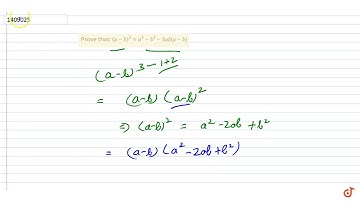 1409025
Prove that: (a - b)³ = a³ - b³ - 3ab(a - b)
(a-b)³⁻¹⁺²
= (a-b) (a-b)²
⇒ (a-b)² = a² - 2ab + b²
= (a-b) (a² - 2ab + b²)